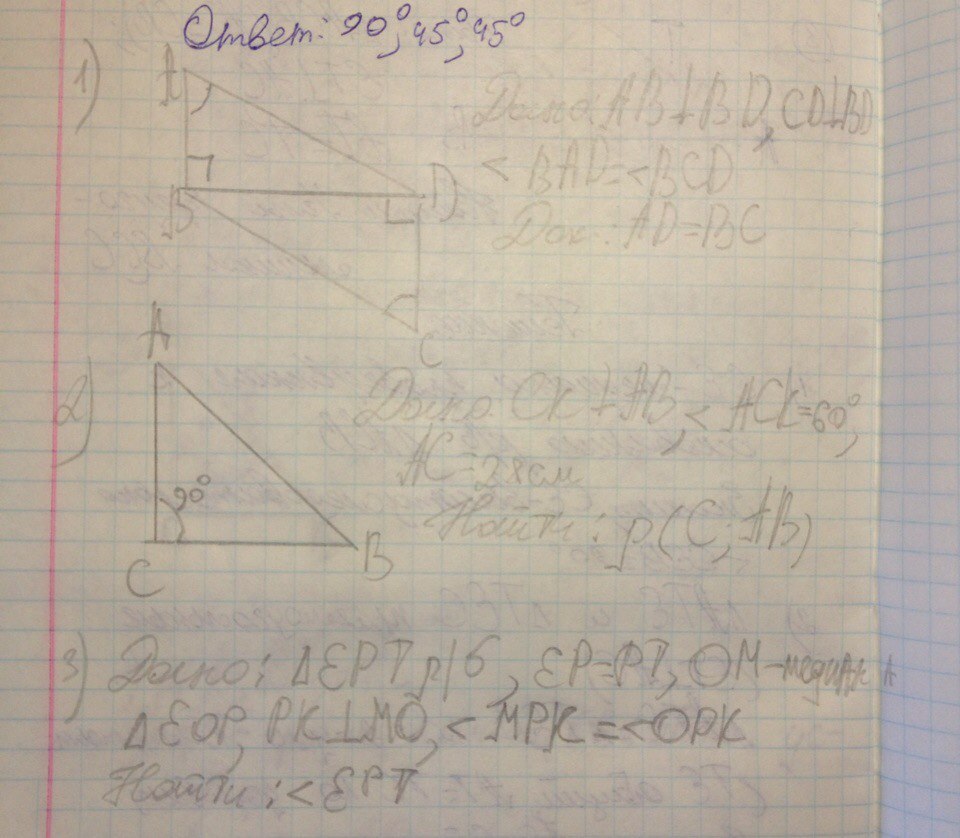 Ответ: 90°, 45°, 45°
1)
A
B
D
C
Дано: AB⊥BD, CD⊥BD
< BAD=<BCD
Док: AD=BC
2)
A
90°
C
B
Дано: CK⊥AB, < ACK=60°,
AC=28см
Найти: p(C; AB)
3) Дано: ΔEPT р/б, EP=PT, OM-медиана
ΔEOP, PK⊥MO, < MPK=<OPK
Найти: <EPT